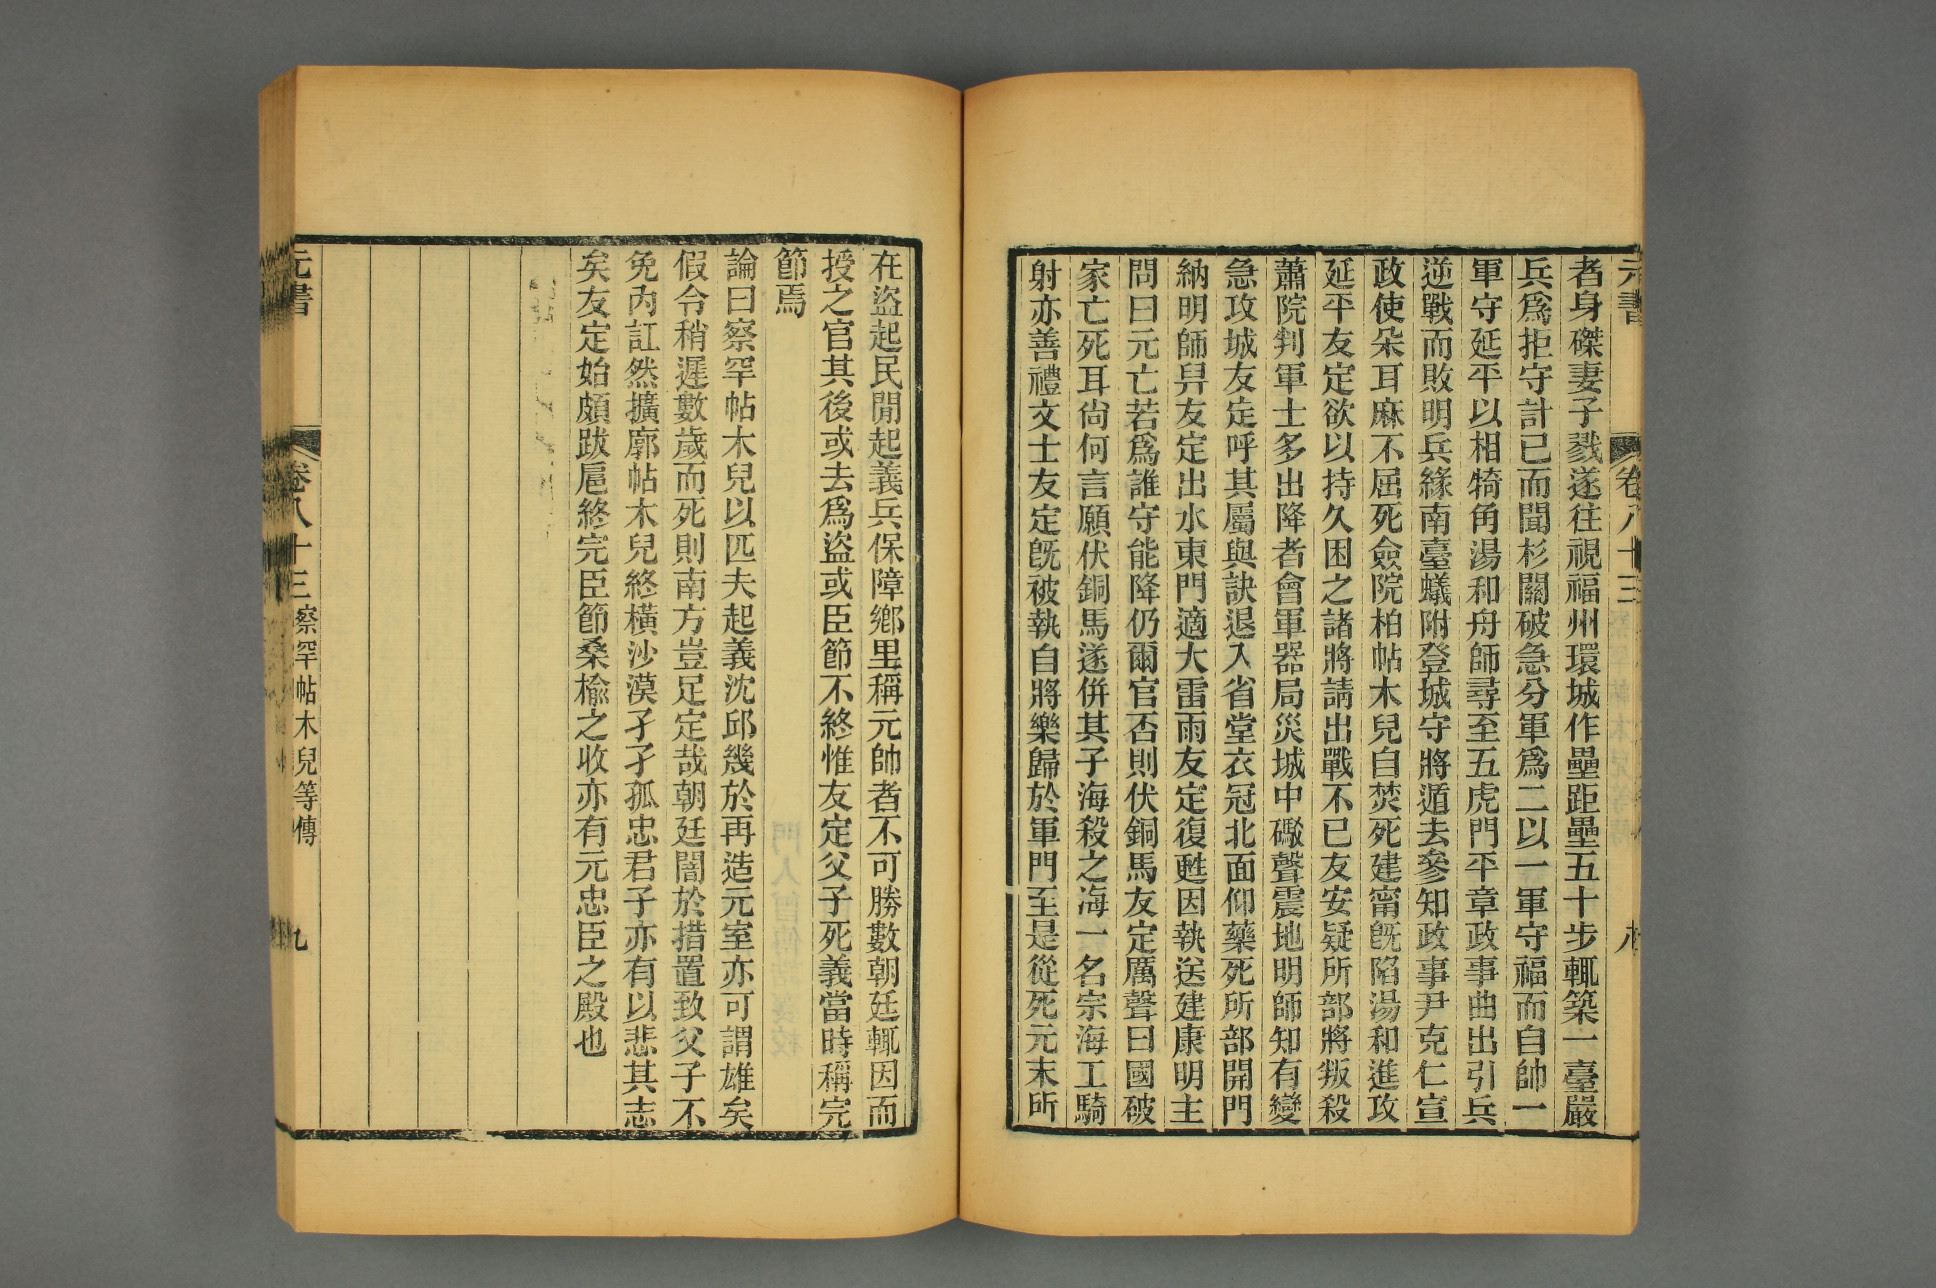 元書
卷八十三
八
者身磔妻子戮遂往視福州環城作壘距壘五十步輒築一臺嚴
兵爲拒守計已而聞杉關破急分軍爲二以一軍守福而自帥一
軍守延平以相犄角湯和舟師尋至五虎門平章政事曲出引兵
逆戰而敗明兵緣南臺蟻附登城守將遁去參知政事尹克仁宣
政使朵耳麻不屈死僉院柏帖木兒自焚死建甯旣陷湯和進攻
延平友定欲以持久困之諸將請出戰不已友安疑所部將叛殺
蕭院判軍士多出降者會軍器局災城中礮聲震地明師知有變
急攻城友定呼其屬與訣退入省堂衣冠北面仰藥死所部開門
納明師舁友定出水東門適大雷雨友定復甦因執送建康明主
問曰元亡若爲誰守能降仍爾官否則伏銅馬友定厲聲曰國破
家亡死耳尙何言願伏銅馬遂倂其子海殺之海一名宗海工騎
射亦善禮文士友定旣被執自將樂歸於軍門至是從死元末所
在盜起民閒起義兵保障鄉里稱元帥者不可勝數朝廷輒因而
授之官其後或去爲盜或臣節不終惟友定父子死義當時稱完
節焉
論曰察罕帖木兒以匹夫起義沈邱幾於再造元室亦可謂雄矣
假令稍遲數歲而死則南方豈足定哉朝廷闇於措置致父子不
免內訌然擴廓帖木兒終橫沙漠孑孑孤忠君子亦有以悲其志
矣友定始頗跋扈終完臣節桑楡之收亦有元忠臣之殿也
元書
卷八十三
察罕帖木兒等傳
九